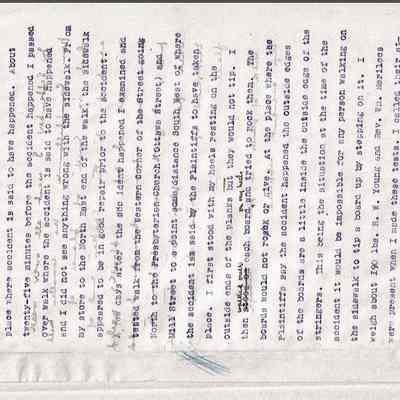 place where accident is said to have happened. About
twenty-five minutes before the accident happened I passed
over walk where the accident is said to have happened
and I did not see anything wrong with the sidewalk. From
my store to the North East end of the walk, the sidewalk
appeared to be in good repair prior to the accident.
days after the accident happened I examined and
tested walk from the Western corner of the Street going
North to the Presbyterian Church (Ottawa Street) and
Mill Street to a point distance South West of where
the accident is said by the Plaintiffs to have taken
place. I first stood with my heels resting on the
outside ends of the boards but they would not tip. I
then each board and tried to rock them. The
boards would not rock or give. At the place where the
Plaintiffs say the accident happened the outside edges
of the boards are a little inside the outside edge of the
stringers. This being the situation at the time of the
accident it would be impossible for any person walking on
the sidewalk to tip a board up by stepping on it. I
weigh about 290 lbs. R. W. Young and Rev. Mr.
were present when I made these tests. I asked their